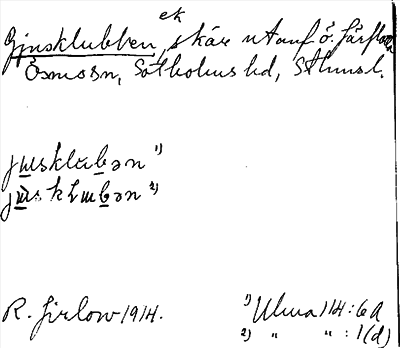 ek
Gjusklubben, skär utanf ö. Järflotta
Ösmosn, Sotholms hd, Sthmsl.
jusklubən ¹)
jusklubən ²)
R. Jirlow 1914.
¹) Ulma 114:6A
²) " " : 1(d)